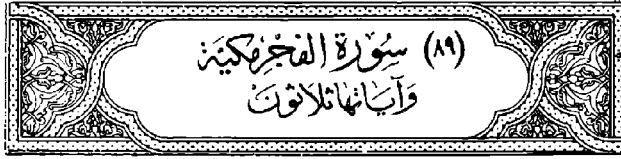 (٨٩) سُورَة الفَجْرِ مَكيَّة
وَآيَاتُهَا ثَلَاثُونَ